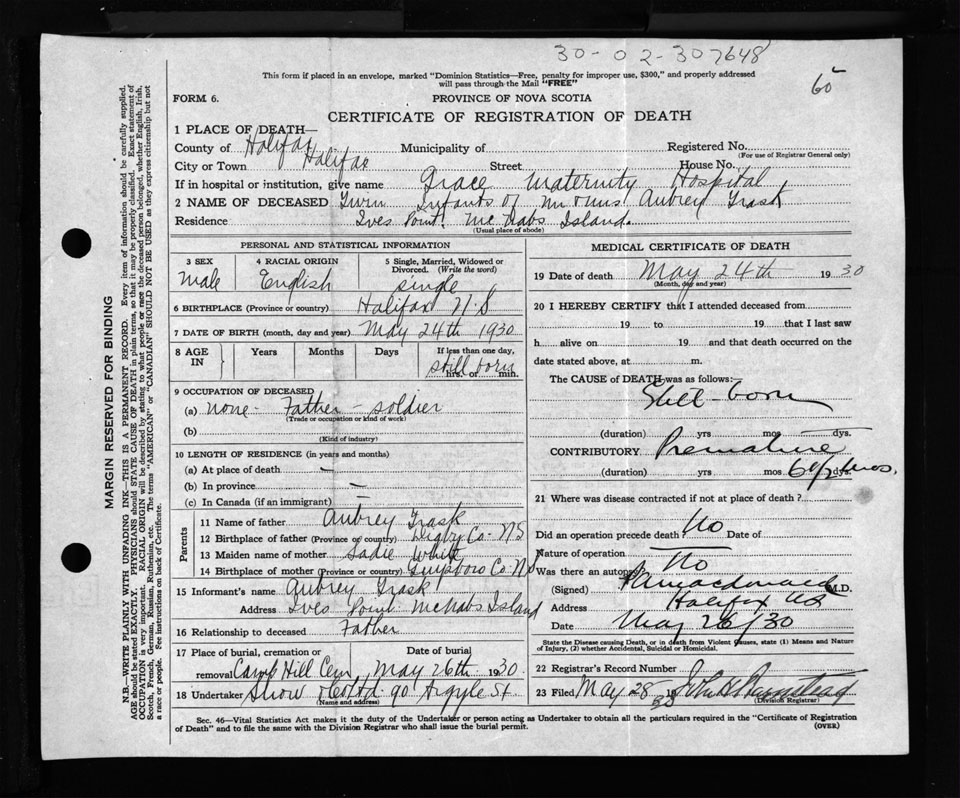 30-02-307648
This form if placed in an envelope, marked "Dominion Statistics—Free, penalty for improper use, $300," and properly addressed
will pass through the Mail "FREE"
65
FORM 6.
PROVINCE OF NOVA SCOTIA
CERTIFICATE OF REGISTRATION OF DEATH
1 PLACE OF DEATH—
County of Halifax Municipality of Registered No.
(For use of Registrar General only)
City or Town Halifax Street House No.
If in hospital or institution, give name Grace Maternity Hospital
2 NAME OF DECEASED Twin Infants of Mr & Mrs Aubrey Trask
Residence Ives Point. McNabs Island.
(Usual place of abode)
PERSONAL AND STATISTICAL INFORMATION
3 SEX
male
4 RACIAL ORIGIN
English
5 Single, Married, Widowed or Divorced. (Write the word)
single
6 BIRTHPLACE (Province or country) Halifax N.S
7 DATE OF BIRTH (month, day and year) May 24th 1930
8 AGE IN Years Months Days If less than one day,
still born
hrs. or min.
9 OCCUPATION OF DECEASED
(a) none - Father - soldier
(Trade or occupation or kind of work)
(b)
(Kind of industry)
10 LENGTH OF RESIDENCE (in years and months)
(a) At place of death —
(b) In province —
(c) In Canada (if an immigrant) —
Parents
11 Name of father Aubrey Trask
12 Birthplace of father (Province or country) Digby Co. NS
13 Maiden name of mother Sadie White
14 Birthplace of mother (Province or country) Guysboro Co NS
15 Informant's name Aubrey Trask
Address Ives Point McNabs Island
16 Relationship to deceased Father
17 Place of burial, cremation or removal Date of burial
Camp Hill Cem May 26th 1930
18 Undertaker Snow & Co Ltd 90 Argyle St
(Name and address)
MEDICAL CERTIFICATE OF DEATH
19 Date of death May 24th 1930
(Month, day and year)
20 I HEREBY CERTIFY that I attended deceased from
19 to 19 that I last saw
h alive on 19 and that death occurred on the
date stated above, at m.
The CAUSE of DEATH was as follows:
Still-born
(duration) yrs mos dys.
CONTRIBUTORY Premature
(duration) yrs mos dys.
21 Where was disease contracted if not at place of death?
Did an operation precede death? No Date of
Nature of operation
Was there an autopsy? No
(Signed) Macdonald M.D.
Address Halifax NS
Date May 26/30
State the Disease causing Death, or in death from Violent Causes, state (1) Means and Nature
of Injury, (2) whether Accidental, Suicidal or Homicidal.
22 Registrar's Record Number
23 Filed May 28 19
(Division Registrar)
Sec. 46—Vital Statistics Act makes it the duty of the Undertaker or person acting as Undertaker to obtain all the particulars required in the "Certificate of Registration
of Death" and to file the same with the Division Registrar who shall issue the burial permit.
(OVER)
MARGIN RESERVED FOR BINDING
N.B.—WRITE PLAINLY WITH UNFADING INK—THIS IS A PERMANENT RECORD. Every item of information should be carefully supplied.
AGE should be stated EXACTLY. PHYSICIANS should STATE CAUSE OF DEATH in plain terms, so that it may be properly classified. Exact statement of
OCCUPATION is very important. RACIAL ORIGIN will be described by stating to what people or race the deceased person belonged, whether English, Irish,
Scotch, French, German, Russian, Ruthenian, etc. The terms "AMERICAN" or "CANADIAN" SHOULD NOT BE USED as they express citizenship but not
a race or people. See instructions on back of Certificate.